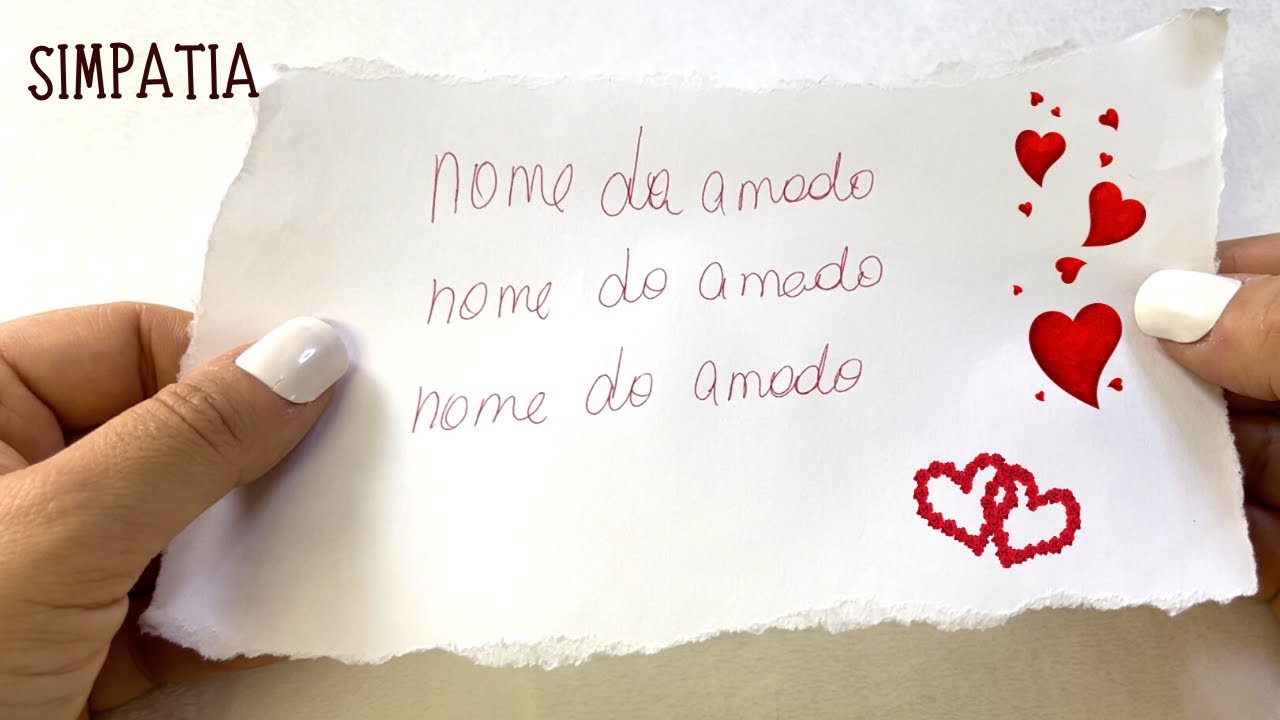 SIMPATIA
nome da amado
nome do amado
nome do amado